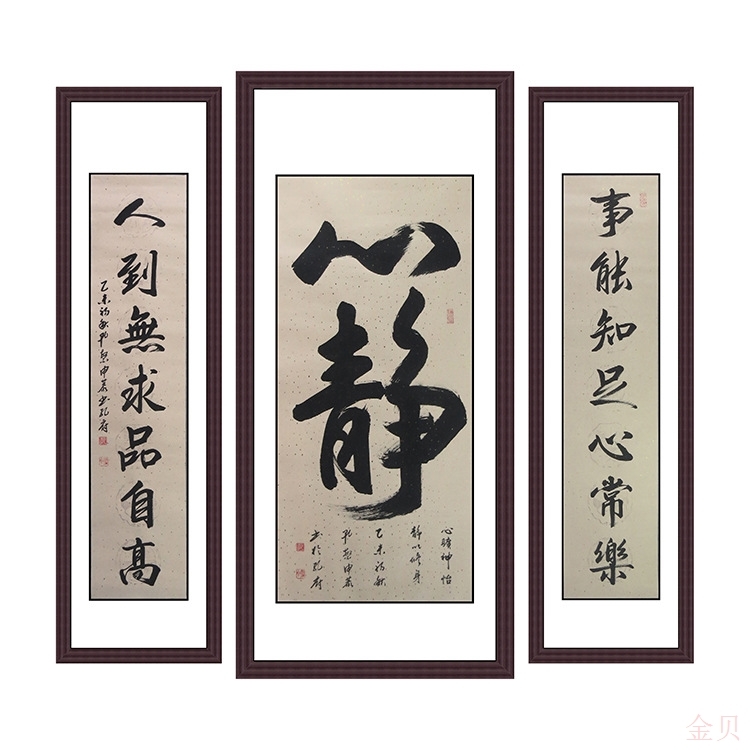 事能知足心常樂
心
静
心曠神怡
静以修身
乙未初秋
书於孔府
人到無求品自高
乙未初秋
书孔府
金贝